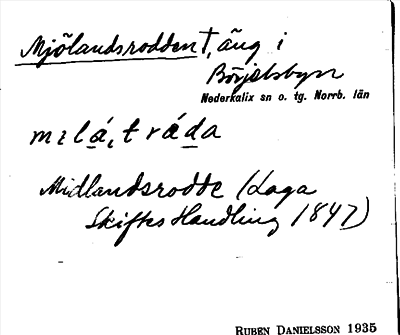 Mjölandsrodden†, äng i
Börjelsbyn
Nederkalix sn o. tg. Norrb. län
mɪlá, t ráda
Midlandsrodde (Laga
Skiftes Handling 1847)
RUBEN DANIELSSON 1935